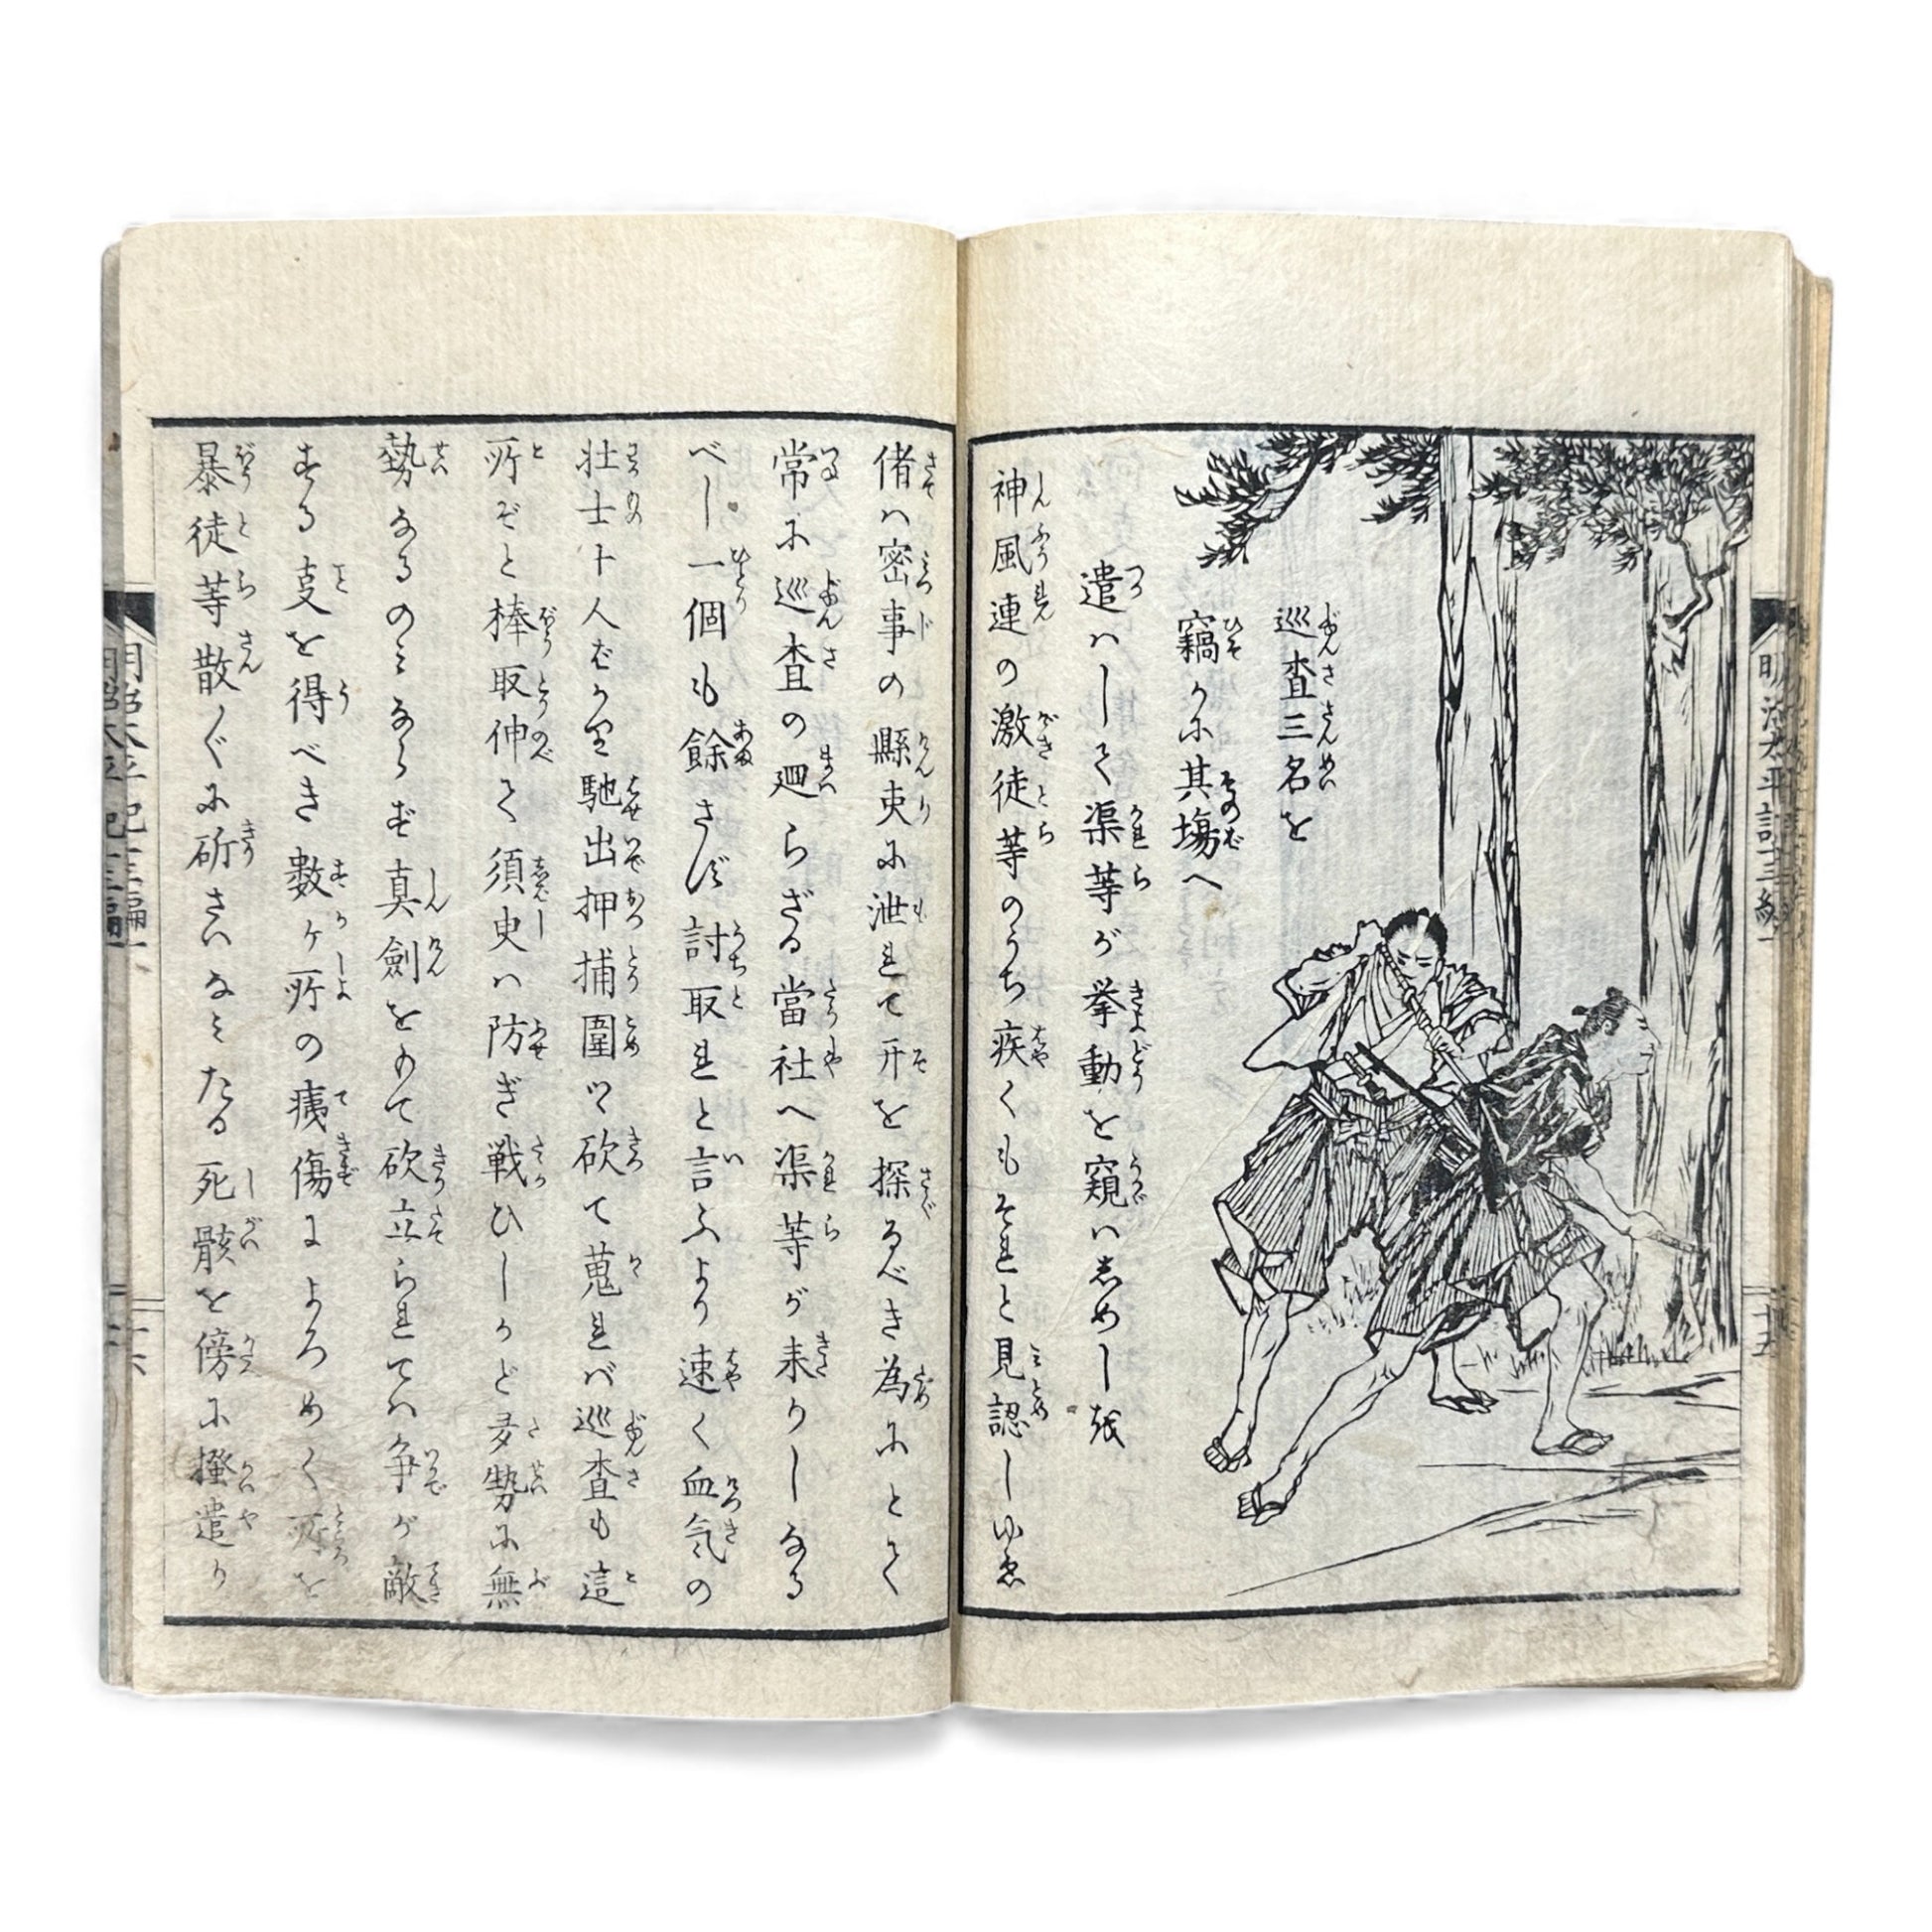 巡査三名を
竊かに其場へ
遣ハして渠等が挙動を窺ハしめし哉
神風連の激徒等のうち疾くもそれと見認しゆゑ
偖ハ密事の縣吏に泄れて开を探るべき為にとて
常に巡査の廻らざる當社へ渠等が来りしなる
べし一個も餘さず討取れと言ふより速く血気の
壮士十人ばかり馳出押捕圍ツ砍て蒐れバ巡査も這
所ぞと棒取伸て須臾ハ防ぎ戦ひしかど多勢に無
勢なるのミならず真劍をもて砍立られてハ争が敵
する支を得べき數ヶ所の痍傷によろめく所を
暴徒等散〲に斫さいなミたる死骸を傍に掻遣り
明治太平記十三編一
十五
明治太平記十三編一
十六